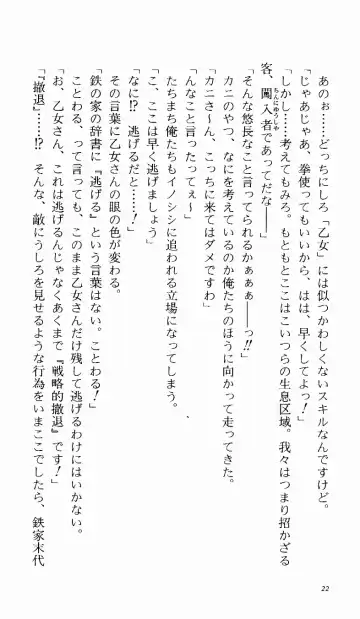 あのぉ……どっちにしろ「乙女」には似つかわしくないスキルなんですけど。
「じゃあじゃあ、拳使ってもいいから、はは、早くしてよっ!」
「しかし……考えてもみろ。もともとここはこいつらの生息区域。我々はつまり招かざる
客、闖入者であってだな――」
ちんにゅうしゃ
「そんな悠長なこと言ってられるかぁぁぁ――っ!!」
カニのやつ、なにを考えているのか俺たちのほうに向かって走ってきた。
「カニさ～ん、こっちに来てはダメですわ」
「んなこと言ったってぇ～」
たちまち俺たちもイノシシに追われる立場になってしまう。
「こ、ここは早く逃げましょう」
「なに!? 逃げるだと――!」
その言葉に乙女さんの眼の色が変わる。
「鉄の家の辞書に『逃げる』という言葉はない。ことわる!」
ことわる、って言っても、このまま乙女さんだけ残して逃げるわけにはいかない。
「お、乙女さん、これは逃げるんじゃなくあくまで『戦略的撤退』です!」
「『撤退』……!? そんな、敵にうしろを見せるような行為をいまここでしたら、鉄家末代
22